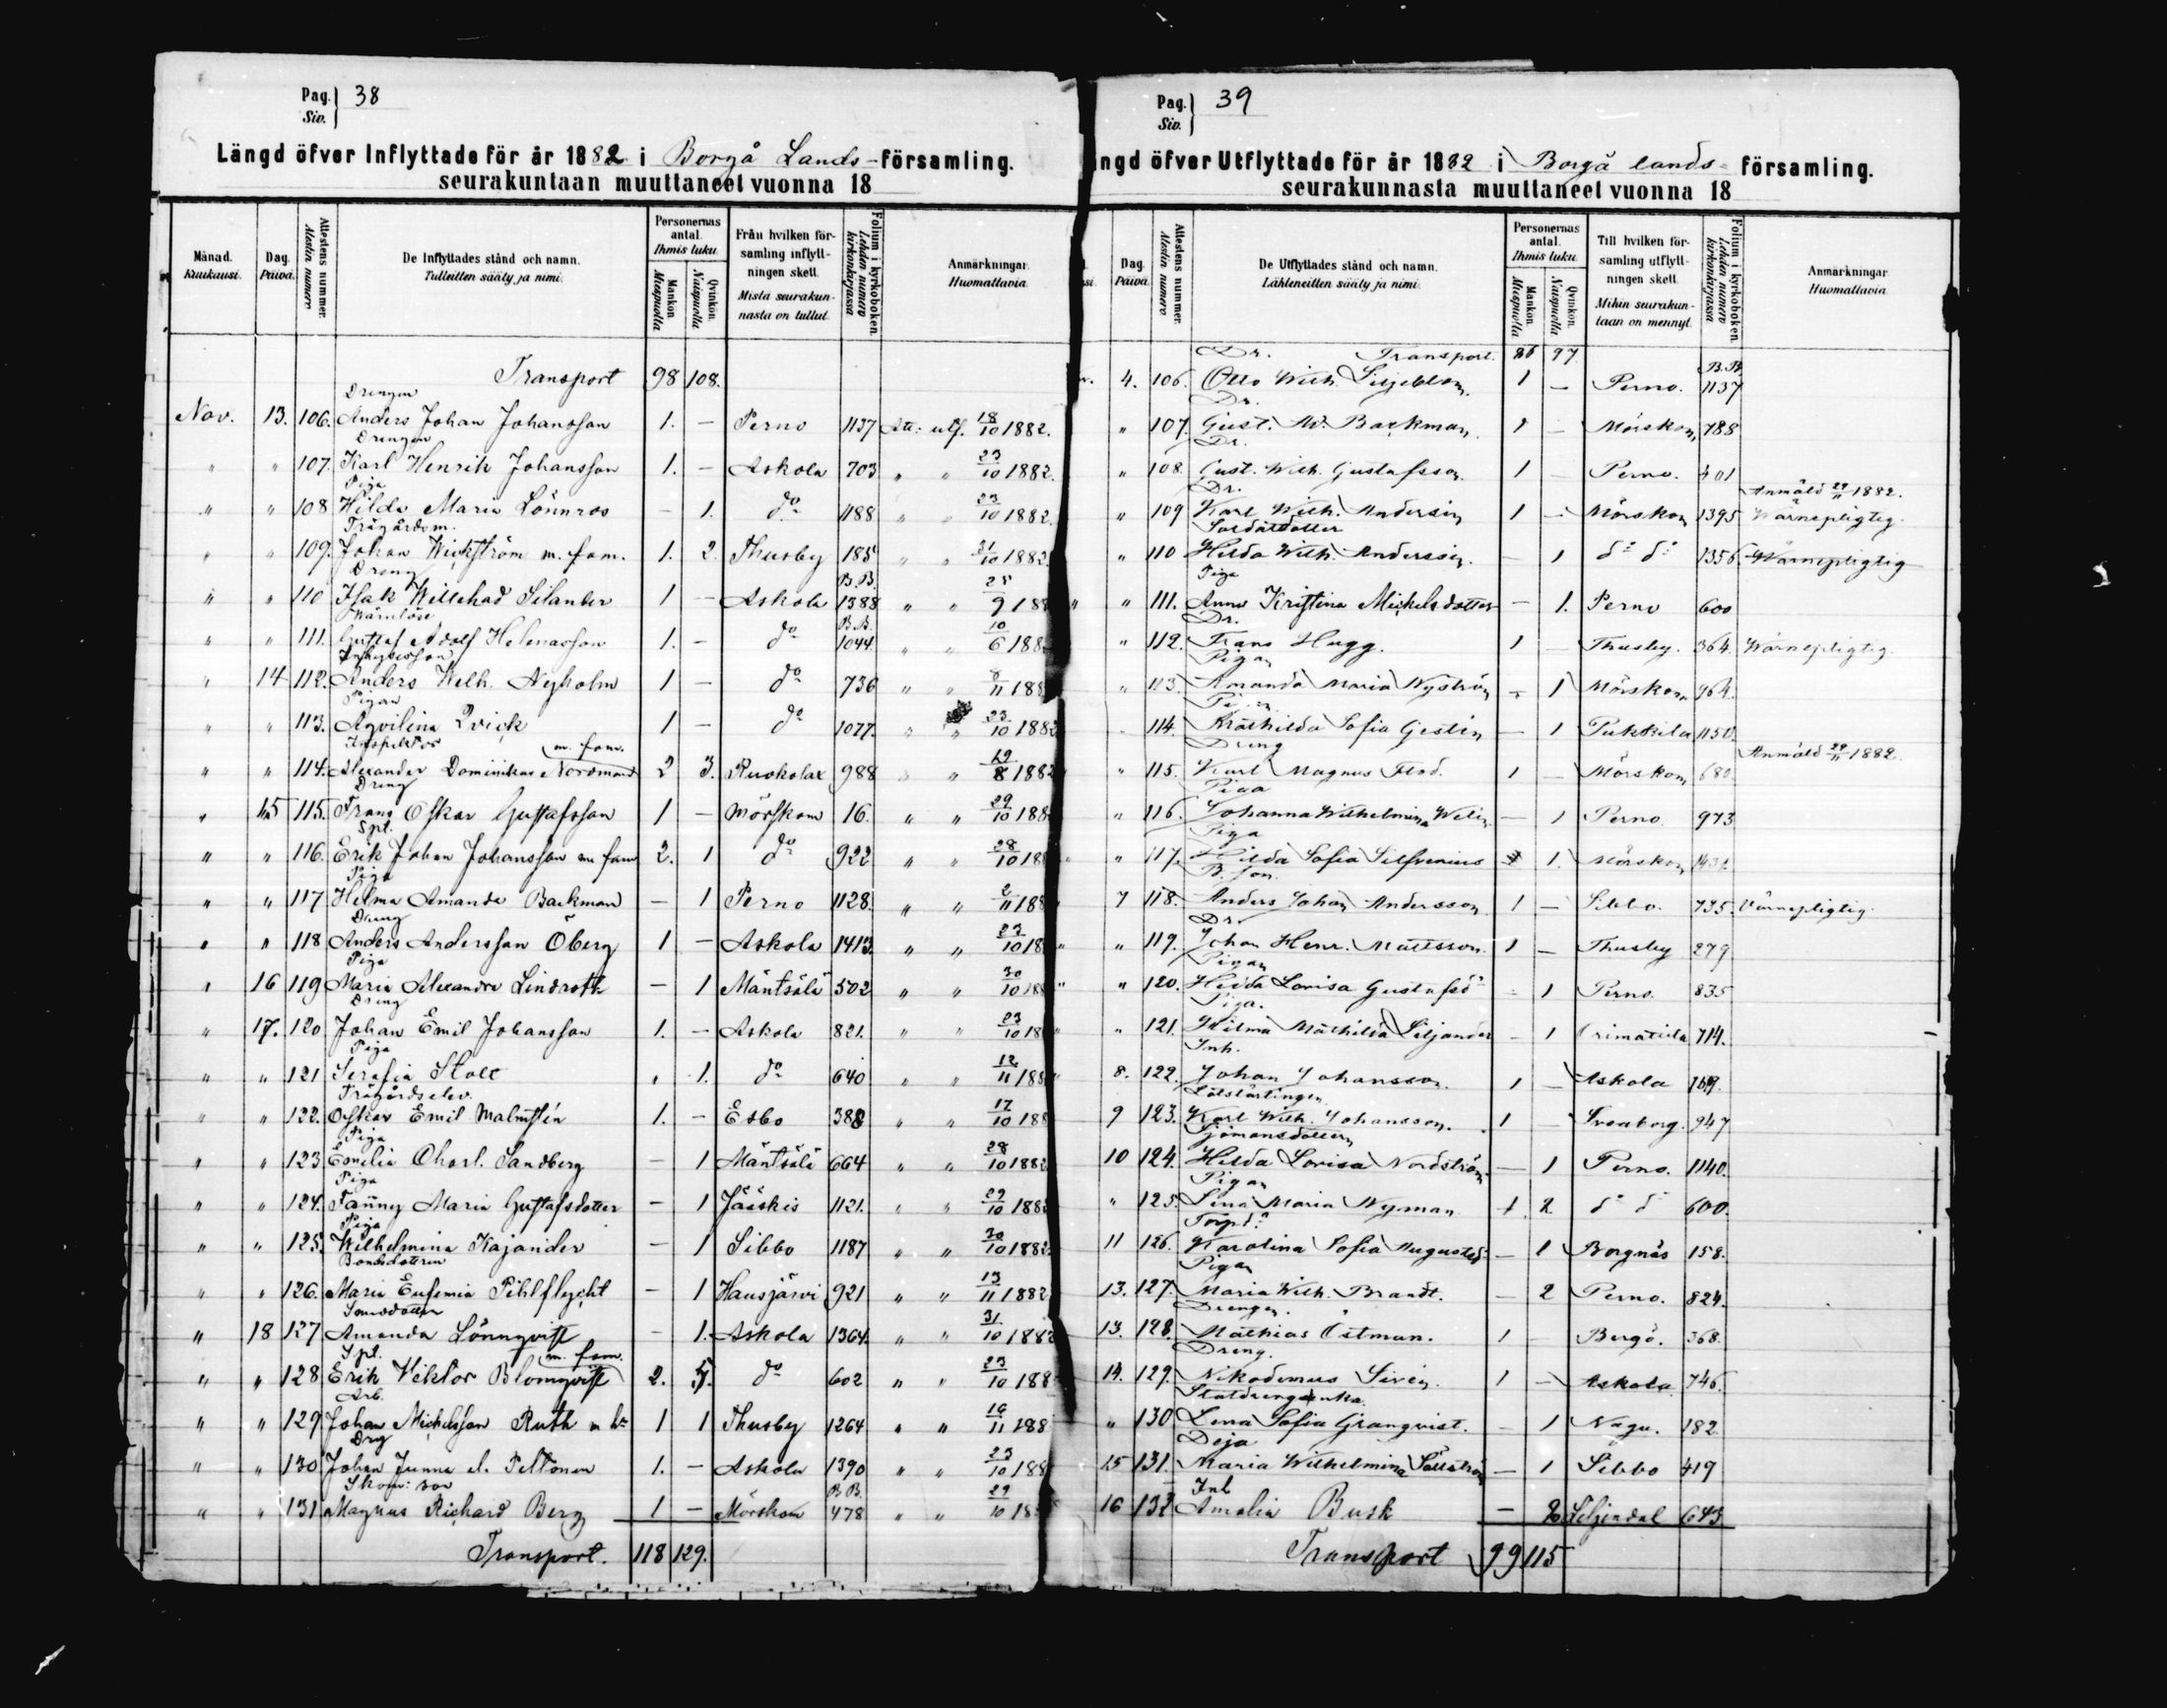 Pag. 38
Siv.
Längd öfver Inflyttade för år 1882 i Borgå Lands-församling.
seurakuntaan muuttaneet vuonna 18
Månad. Kuukausi. Dag. Päivä. Attestens nummer. Alestin numero De Inflyttades stånd och namn. Tulleitten sääty ja nimi. Personernas antal. Ihmis luku. Mankön. Miespuolia Qvinkön. Naispuolia Från hvilken församling inflyttningen skett. Mistä seurakunnasta on tullut. Folium i kyrkoboken. Lehden numero kirkonkirjassa Anmärkningar. Huomattavia
Transport 98 108.
Drengen
Nov. 13. 106. Anders Johan Johansson 1. – Perno 1137 Att: utf. 18/10 1882.
Drengen
" " 107. Karl Henrik Johansson 1. – Askola 703 " " 23/10 1882.
Piga
" " 108 Hilda Maria Lönnros – 1. do 1188 " " 23/10 1882.
Trägårdsm.
" " 109. Johan Wickström m. fam. 1. 2. Thusby 185 " " 31/10 1882
Dreng B.B.
" " 110 Isak Willehad Silander 1 – Askola 1388 " " 25/9 188
B.B.
" " 111. Gustaf Adolf Helenasson 1. – do 1044 " " 10/6 188
" 14 112. Anders Wilh. Nyholm 1 – do 736 " " 8/11 188
Pigan
" " 113. Aqvilina Qvick 1 – do 1077. " " 23/10 1882
Inspektor m. fam.
" " 114. Alexander Dominikus Nordmand 2 3. Ruokolax 988 " " 19/8 1882
Dreng
" 15 115. Frans Oskar Gustafsson 1 – Mörskom 16. " " 29/10 188
Spt.
" " 116. Erik Johan Johansson m fam 2. 1 do 922 " " 28/10 18
Piga
" " 117 Helma Amanda Backman – 1 Perno 1128. " " 2/11 188
Dreng
" " 118 Anders Andersson Öberg 1 – Askola 1413. " " 23/10 18
Piga
" 16 119 Maria Alexandra Lindroth – 1 Mäntsälä 502 " " 30/10 188
Dreng
" 17. 120 Johan Emil Johansson 1. – Askola 821. " " 23/10 18
Piga
" " 121 Serafia Stolt " 1. do 640 " " 12/11 188
Trägårdselev.
" " 122. Oskar Emil Malmstén 1. – Esbo 388 " " 17/10 188
Piga
" " 123 Emilia Charl. Sandberg – 1 Mäntsälä 664 " " 28/10 1882
Piga
" " 124. Fanny Maria Gustafsdotter – 1 Jääskis 1121. " " 29/10 1882
Piga
" " 125. Wilhelmina Kajander – 1 Sibbo 1187 " " 30/10 1882
Bondedottern
" " 126. Maria Eufemia Pihlflycht – 1 Hausjärvi 921 " " 13/11 1882
" 18 127 Amanda Lönnqvist – 1. Askola 1364. " " 31/10 1882
Spt. m. fam.
" " 128 Erik Viktor Blomqvist 2. 5. do 602 " " 23/10 188
Arb.
" " 129 Johan Michelsson Ruth m h: 1 1 Thusby 1264 " " 16/11 188
Drg
" " 130 Johan Junna el. Peltonen 1. – Askola 1390 " " 23/10 188
B.B.
" " 131 Magnus Richard Berg 1 – Mörskom 478 " " 29/10 18
Transport. 118 129.
Pag. 39
Siv.
ngd öfver Utflyttade för år 1882 i Borgå lands-församling.
seurakunnasta muuttaneet vuonna 18
Dag. Päivä. Attestens nummer. Alestin numero De Utflyttades stånd och namn. Lähteneitten sääty ja nimi. Personernas antal. Ihmis luku. Mankön. Miespuolia Qvinkön. Naispuolia Till hvilken församling utflyttningen skett. Mihin seurakuntaan on mennyt. Folium i kyrkoboken. Lehden numero kirkonkirjassa Anmärkningar Huomattavia
Dr. Transport. 86 97. B.B.
4. 106. Otto Wilh. Liljeblom. 1 – Perno. 1137
Dr.
" 107. Gust. Ad. Backman. 1 – Mörskom 788
Dr.
" 108. Gust. Wilh. Gustafsson. 1 – Perno. 401
Dr. Anmäld 29/11 1882.
" 109 Karl Wilh. Andersin 1 – Mörskom 1395 Wärnepligtig.
Soldatdotter
" 110 Hilda Wilh. Andersin. – 1 do do 1356. Wärnepligtig
Piga
" 111. Anna Kristina Michelsdotter – 1. Perno 600
Dr.
" 112. Frans Hugg. 1 – Thusby. 364. Wärnepligtig.
Pigan
" 113. Amanda Maria Nyström – 1 Mörskom 964.
Pigan
114. Mathilda Sofia Gestén – 1 Pukkila 1150.
Dreng Anmäld 29/11 1882.
" 115. Karl Magnus Flod. 1 – Mörskom 680
Piga
" 116. Johanna Wilhelmina Welin – 1 Perno. 973
Piga
" 117. Hilda Sofia Silfvenius 1. Mörskom 1432.
B. son.
7 118. Anders Johan Andersson 1 – Sibbo. 735. Värnepligtig.
Dr.
" 119. Johan Henr. Mattsson. 1 – Thusby 279
Pigan
" 120. Hilda Lovisa Gustafsd – 1 Perno. 835
Piga.
" 121. Hilma Mathilda Liljander – 1 Orimattila 714.
Inh.
8. 122. Johan Johansson. 1 – Askola 169.
9 123. Karl Wilh. Johansson. 1 – Sveaborg. 947
Sjömansdottern
10 124. Hilda Lovisa Nordström – 1 Perno. 1140.
Pigan
" 125. Lena Maria Nyman 1. 2 do do 600.
Torpd:
11 126. Karolina Sofia Augustsd. – 1 Borgnäs 158.
Pigan
13. 127. Maria Wilh. Brandt. – 2 Perno. 824.
Drengen.
13. 128. Mathias Östman. 1 – Borgå. 368.
Dreng.
14. 129. Nikodemus Sirén. 1 – Askola 746.
Statdrengsenka.
" 130 Lena Sofia Granqvist. – 1 Nagu. 182
Deja
15 131. Maria Wilhelmina Sällström – 1 Sibbo 419
Inh
16 132 Amalia Busk – 2 Liljendal 643
Transport 99 115